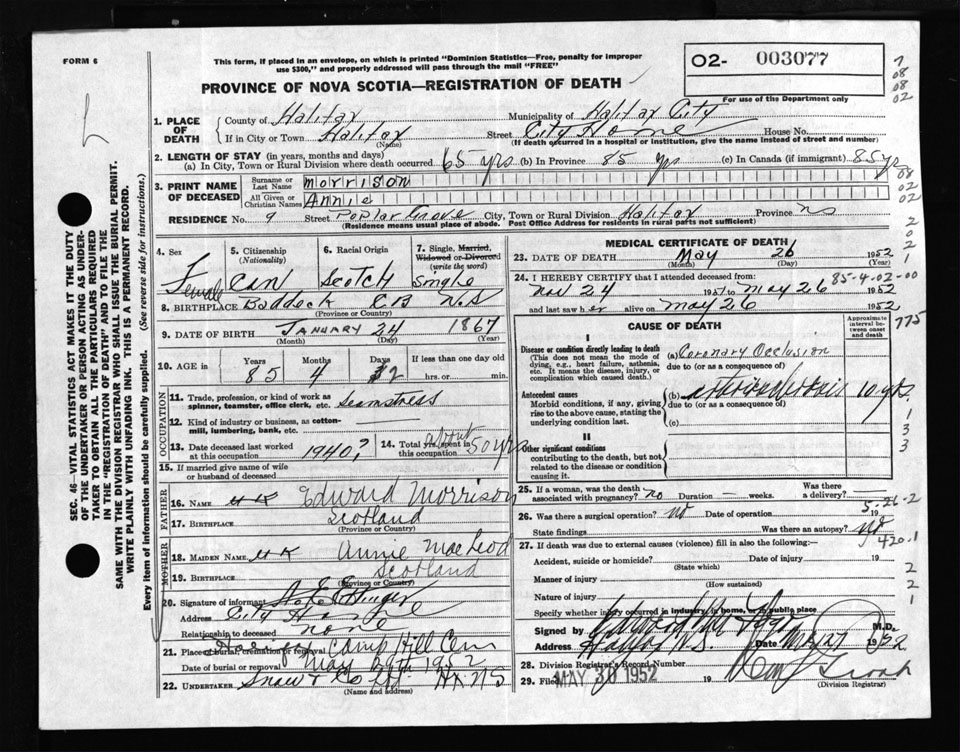 FORM 6
This form, if placed in an envelope, on which is printed "Dominion Statistics—Free, penalty for improper
use $300," and properly addressed will pass through the mail "FREE"
02- 003077
For use of the Department only
PROVINCE OF NOVA SCOTIA—REGISTRATION OF DEATH
7
08
08
02
1. PLACE OF DEATH
County of Halifax Municipality of Halifax City
If in City or Town Halifax Street City Home House No.
(Name) (If death occurred in a hospital or institution, give the name instead of street and number)
2. LENGTH OF STAY (in years, months and days)
(a) In City, Town or Rural Division where death occurred 65 yrs (b) In Province 85 yrs (c) In Canada (if immigrant) 85 yr
3. PRINT NAME OF DECEASED
Surname or Last Name Morrison
All Given or Christian Names Annie
08
02
02
RESIDENCE No. 9 Street Poplar Grove City, Town or Rural Division Halifax Province NS
(Residence means usual place of abode. Post Office Address for residents in rural parts not sufficient)
4. Sex Female
5. Citizenship (Nationality) Can
6. Racial Origin Scotch
7. Single, Married, Widowed or Divorced (write the word) Single
8. BIRTHPLACE Baddeck CB N.S
(Province or Country)
9. DATE OF BIRTH January 24 1867
(Month) (Day) (Year)
10. AGE in Years 85 Months 4 Days 2 If less than one day old hrs. or min.
OCCUPATION
11. Trade, profession, or kind of work as spinner, teamster, office clerk, etc. Seamstress
12. Kind of industry or business, as cotton-mill, lumbering, bank, etc.
13. Date deceased last worked at this occupation 1940?
14. Total yrs. spent in this occupation about 50 yrs
15. If married give name of wife or husband of deceased
FATHER
16. NAME U K Edward Morrison
17. BIRTHPLACE Scotland
(Province or Country)
MOTHER
18. MAIDEN NAME U K Annie MacLeod
19. BIRTHPLACE Scotland
(Province or Country)
20. Signature of informant
Address City Home
Relationship to deceased none
21. Place of burial, cremation or removal Camp Hill Cem
Date of burial or removal May 29th 1952
22. UNDERTAKER Snow & Co Ltd. Hx NS
(Name and address)
MEDICAL CERTIFICATE OF DEATH
23. DATE OF DEATH May 26 1952
(Month) (Day) (Year)
24. I HEREBY CERTIFY that I attended deceased from: 85-4-02-00
Nov 24 1951 to May 26 1952
and last saw her alive on May 26 1952.
775
CAUSE OF DEATH
Approximate interval between onset and death
I
Disease or condition directly leading to death
(This does not mean the mode of dying, e.g., heart failure, asthenia, etc. It means the disease, injury, or complication which caused death.)
(a) Coronary Occlusion
due to (or as a consequence of)
Antecedent causes
Morbid conditions, if any, giving rise to the above cause, stating the underlying condition last.
(b) arteriosclerosis 10 yrs
due to (or as a consequence of)
(c)
II
Other significant conditions
contributing to the death, but not related to the disease or condition causing it.
25. If a woman, was the death associated with pregnancy? no Duration — weeks. Was there a delivery? —
5-26-2
26. Was there a surgical operation? No Date of operation 19
State findings Was there an autopsy? No
420.1
27. If death was due to external causes (violence) fill in also the following:
Accident, suicide or homicide? Date of injury 19
(State which)
Manner of injury
(How sustained)
Nature of injury
Specify whether injury occurred in industry, in home, or in public place
Signed by M.D.
Address Halifax N.S. Date May 1952
28. Division Registrar's Record Number
29. Filed MAY 30 1952 19
(Division Registrar)
SEC. 46—VITAL STATISTICS ACT MAKES IT THE DUTY
OF THE UNDERTAKER OR PERSON ACTING AS UNDER-
TAKER TO OBTAIN ALL THE PARTICULARS REQUIRED
IN THE "REGISTRATION OF DEATH" AND TO FILE THE
SAME WITH THE DIVISION REGISTRAR WHO SHALL ISSUE THE BURIAL PERMIT.
WRITE PLAINLY WITH UNFADING INK. THIS IS A PERMANENT RECORD.
Every item of information should be carefully supplied. (See reverse side for instructions.)